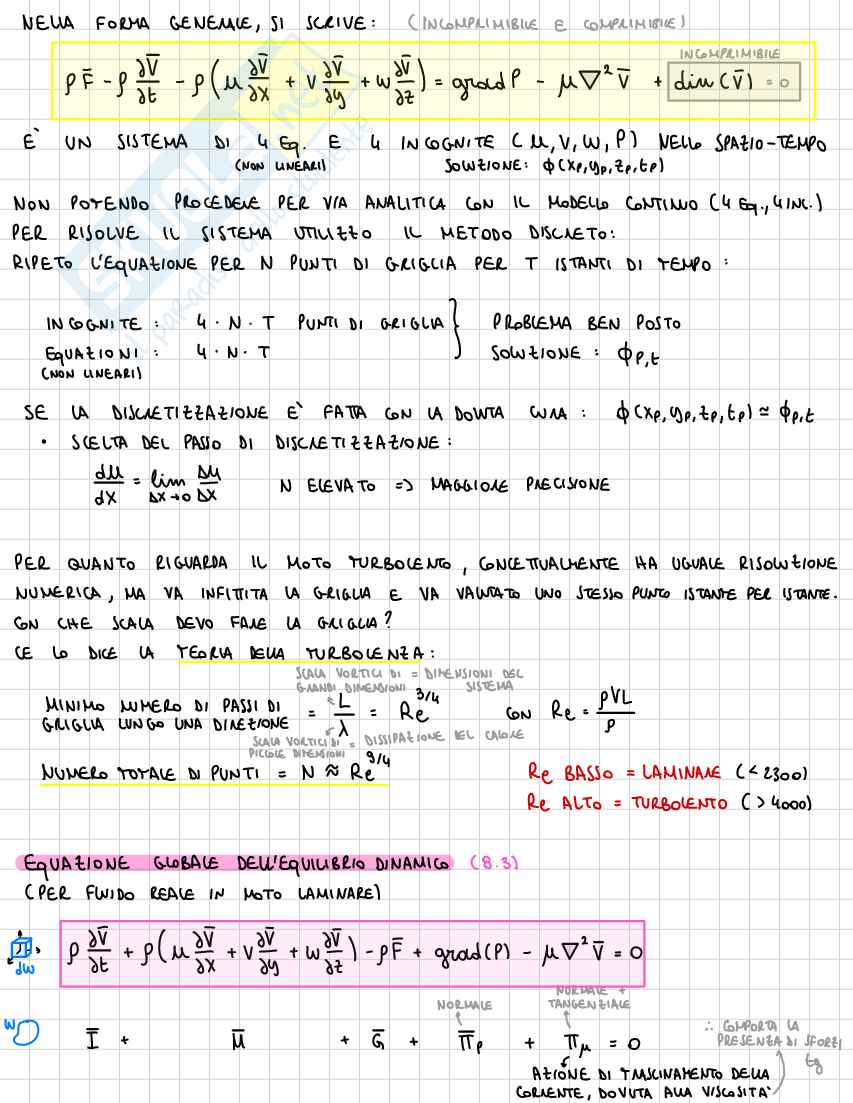 NELLA FORMA GENERALE, SI SCRIVE: (INCOMPRIMIBILE E COMPRIMIBILE)
INCOMPRIMIBILE
ρF̄ - ρ ∂V̄/∂t - ρ(u ∂V̄/∂x + v ∂V̄/∂y + w ∂V̄/∂z) = grad P - μ∇²V̄ + div(V̄) = 0
E' UN SISTEMA DI 4 Eq. E 4 INCOGNITE (u, v, w, P) NELLO SPAZIO-TEMPO
(NON LINEARI) SOLUZIONE: ϕ(xp, yp, zp, tp)
NON POTENDO PROCEDERE PER VIA ANALITICA CON IL MODELLO CONTINUO (4 Eq., 4 INC.)
PER RISOLVE IL SISTEMA UTILIZZO IL METODO DISCRETO:
RIPETO L'EQUAZIONE PER N PUNTI DI GRIGLIA PER T ISTANTI DI TEMPO:
INCOGNITE: 4 · N · T PUNTI DI GRIGLIA } PROBLEMA BEN POSTO
EQUAZIONI: 4 · N · T SOLUZIONE: ϕp,t
(NON LINEARI)
SE LA DISCRETIZZAZIONE E' FATTA CON LA DOVUTA CURA: ϕ(xp, yp, zp, tp) ≃ ϕp,t
• SCELTA DEL PASSO DI DISCRETIZZAZIONE:
du/dx = lim Δx→0 Δu/Δx N ELEVATO => MAGGIORE PRECISIONE
PER QUANTO RIGUARDA IL MOTO TURBOLENTO, CONCETTUALMENTE HA UGUALE RISOLUZIONE
NUMERICA, MA VA INFITTITA LA GRIGLIA E VA VALUTATO UNO STESSO PUNTO ISTANTE PER ISTANTE.
CON CHE SCALA DEVO FARE LA GRIGLIA?
CE LO DICE LA TEORIA DELLA TURBOLENZA:
SCALA VORTICI DI GRANDI DIMENSIONI = DIMENSIONI DEL SISTEMA
MINIMO NUMERO DI PASSI DI GRIGLIA LUNGO UNA DIREZIONE = L/λ = Re^3/4 CON Re = ρVL/ρ
SCALA VORTICI DI PICCOLE DIMENSIONI = DISSIPAZIONE DEL CALORE
NUMERO TOTALE DI PUNTI = N ≈ Re^9/4
Re BASSO = LAMINARE (<2300)
Re ALTO = TURBOLENTO (>4000)
EQUAZIONE GLOBALE DELL'EQUILIBRIO DINAMICO (8.3)
(PER FLUIDO REALE IN MOTO LAMINARE)
ρ ∂V̄/∂t + ρ(u ∂V̄/∂x + v ∂V̄/∂y + w ∂V̄/∂z) - ρF̄ + grad(P) - μ∇²V̄ = 0
dW
NORMALE
NORMALE + TANGENZIALE
W Ī + M̄ + Ḡ + Π̄p + Π̄μ = 0
∴ COMPORTA LA PRESENZA DI SFORZI tg
AZIONE DI TRASCINAMENTO DELLA
CORRENTE, DOVUTA ALLA VISCOSITA'